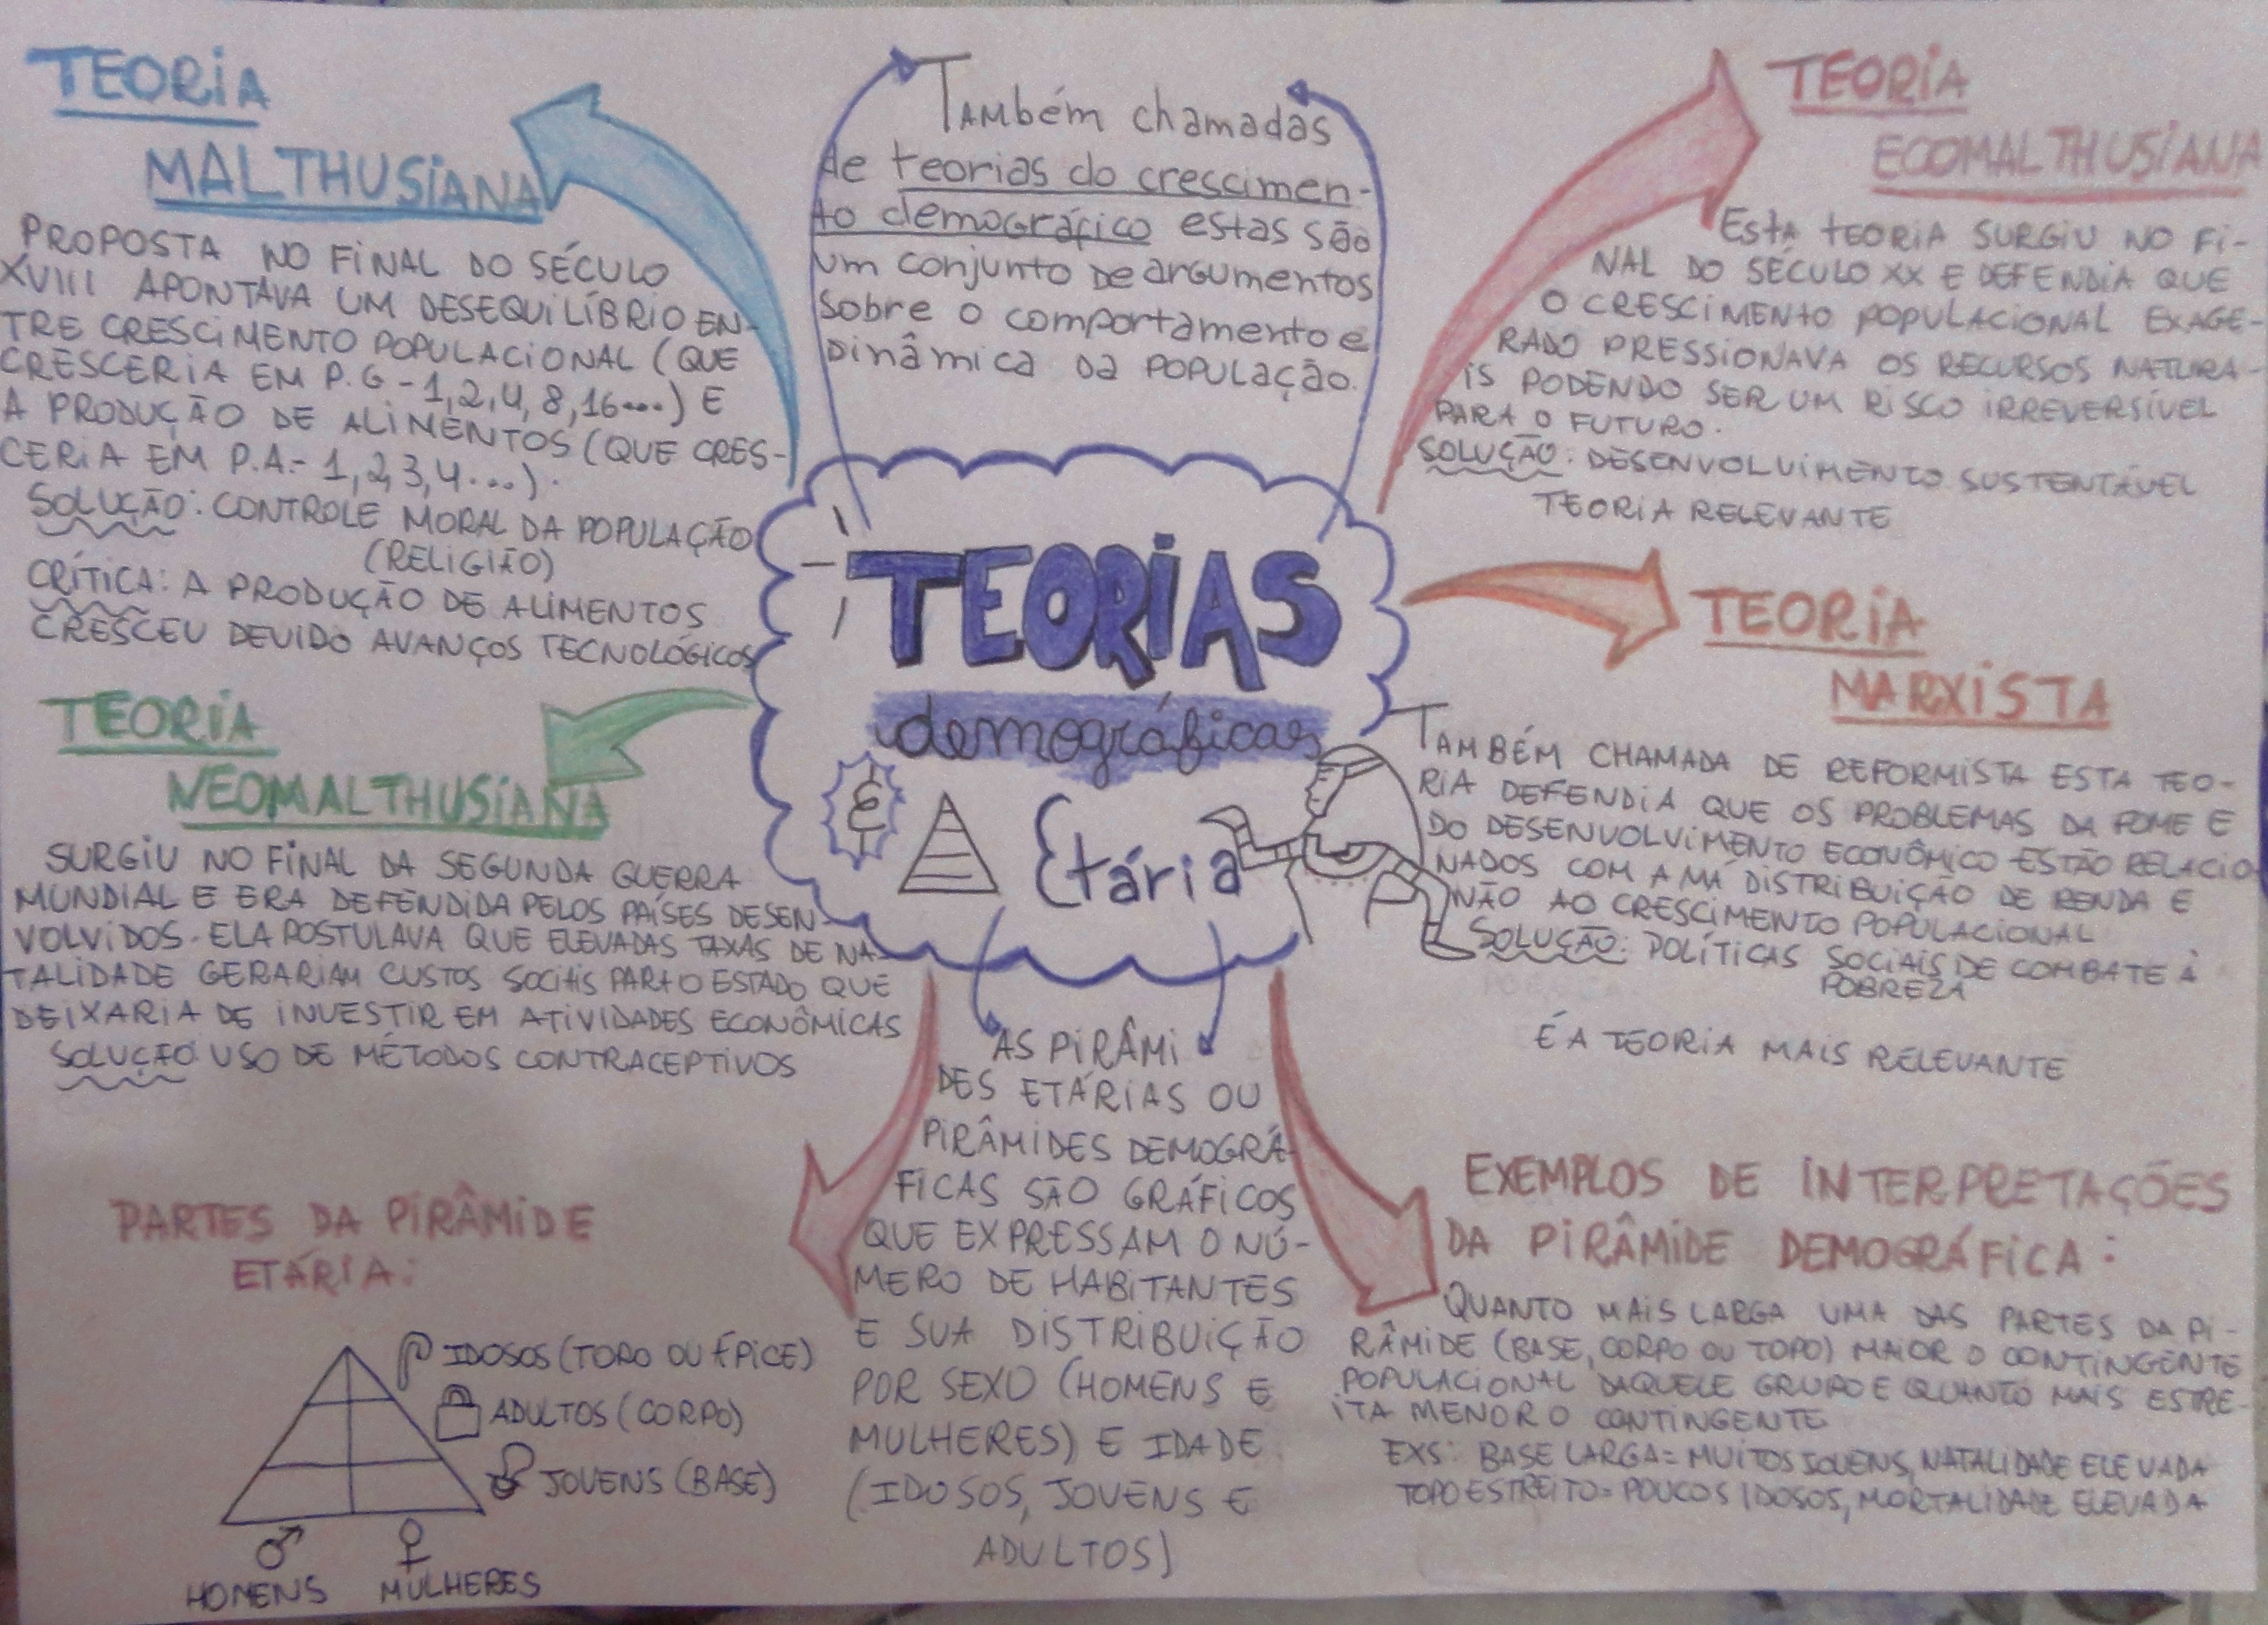 TEORIA
MALTHUSIANA
PROPOSTA NO FINAL DO SÉCULO
XVIII APONTAVA UM DESEQUILÍBRIO EN-
TRE CRESCIMENTO POPULACIONAL (QUE
CRESCERIA EM P.G - 1,2,4,8,16....) E
A PRODUÇÃO DE ALIMENTOS (QUE CRES-
CERIA EM P.A.- 1,2,3,4....).
SOLUÇÃO: CONTROLE MORAL DA POPULAÇÃO
(RELIGIÃO)
CRÍTICA: A PRODUÇÃO DE ALIMENTOS
CRESCEU DEVIDO AVANÇOS TECNOLÓGICOS
TEORIA
NEOMALTHUSIANA
SURGIU NO FINAL DA SEGUNDA GUERRA
MUNDIAL E ERA DEFENDIDA PELOS PAÍSES DESEN-
VOLVIDOS. ELA POSTULAVA QUE ELEVADAS TAXAS DE NA-
TALIDADE GERARIAM CUSTOS SOCIAIS PARA O ESTADO QUE
DEIXARIA DE INVESTIR EM ATIVIDADES ECONÔMICAS
SOLUÇÃO: USO DE MÉTODOS CONTRACEPTIVOS
Também chamadas
de teorias do crescimen-
to demográfico estas são
um conjunto de argumentos
sobre o comportamento e
dinâmica da população.
TEORIAS
demográficas
& Etária
TEORIA
ECOMALTHUSIANA
ESTA TEORIA SURGIU NO FI-
NAL DO SÉCULO XX E DEFENDIA QUE
O CRESCIMENTO POPULACIONAL EXAGE-
RADO PRESSIONAVA OS RECURSOS NATURA-
IS PODENDO SER UM RISCO IRREVERSÍVEL
PARA O FUTURO.
SOLUÇÃO: DESENVOLVIMENTO SUSTENTÁVEL
TEORIA RELEVANTE
TEORIA
MARXISTA
TAMBÉM CHAMADA DE REFORMISTA ESTA TEO-
RIA DEFENDIA QUE OS PROBLEMAS DA FOME E
DO DESENVOLVIMENTO ECONÔMICO ESTÃO RELACIO
NADOS COM A MÁ DISTRIBUIÇÃO DE RENDA E
NÃO AO CRESCIMENTO POPULACIONAL
SOLUÇÃO: POLÍTICAS SOCIAIS DE COMBATE À
POBREZA
É A TEORIA MAIS RELEVANTE
AS PIRÂMI
DES ETÁRIAS OU
PIRÂMIDES DEMOGRÁ-
FICAS SÃO GRÁFICOS
QUE EXPRESSAM O NÚ-
MERO DE HABITANTES
E SUA DISTRIBUIÇÃO
POR SEXO (HOMENS E
MULHERES) E IDADE
(IDOSOS, JOVENS E
ADULTOS)
PARTES DA PIRÂMIDE
ETÁRIA:
IDOSOS (TOPO OU ÁPICE)
ADULTOS (CORPO)
JOVENS (BASE)
♂ ♀
HOMENS MULHERES
EXEMPLOS DE INTERPRETAÇÕES
DA PIRÂMIDE DEMOGRÁFICA:
QUANTO MAIS LARGA UMA DAS PARTES DA PI-
RÂMIDE (BASE, CORPO OU TOPO) MAIOR O CONTINGENTE
POPULACIONAL DAQUELE GRUPO E QUANTO MAIS ESTRE-
ITA MENOR O CONTINGENTE
EXS: BASE LARGA = MUITOS JOVENS, NATALIDADE ELEVADA
TOPO ESTREITO = POUCOS IDOSOS, MORTALIDADE ELEVADA